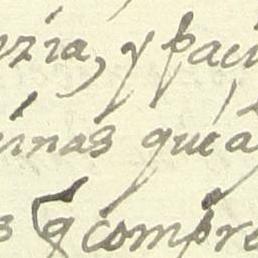 zia, y paci
inas que a
s (q compre